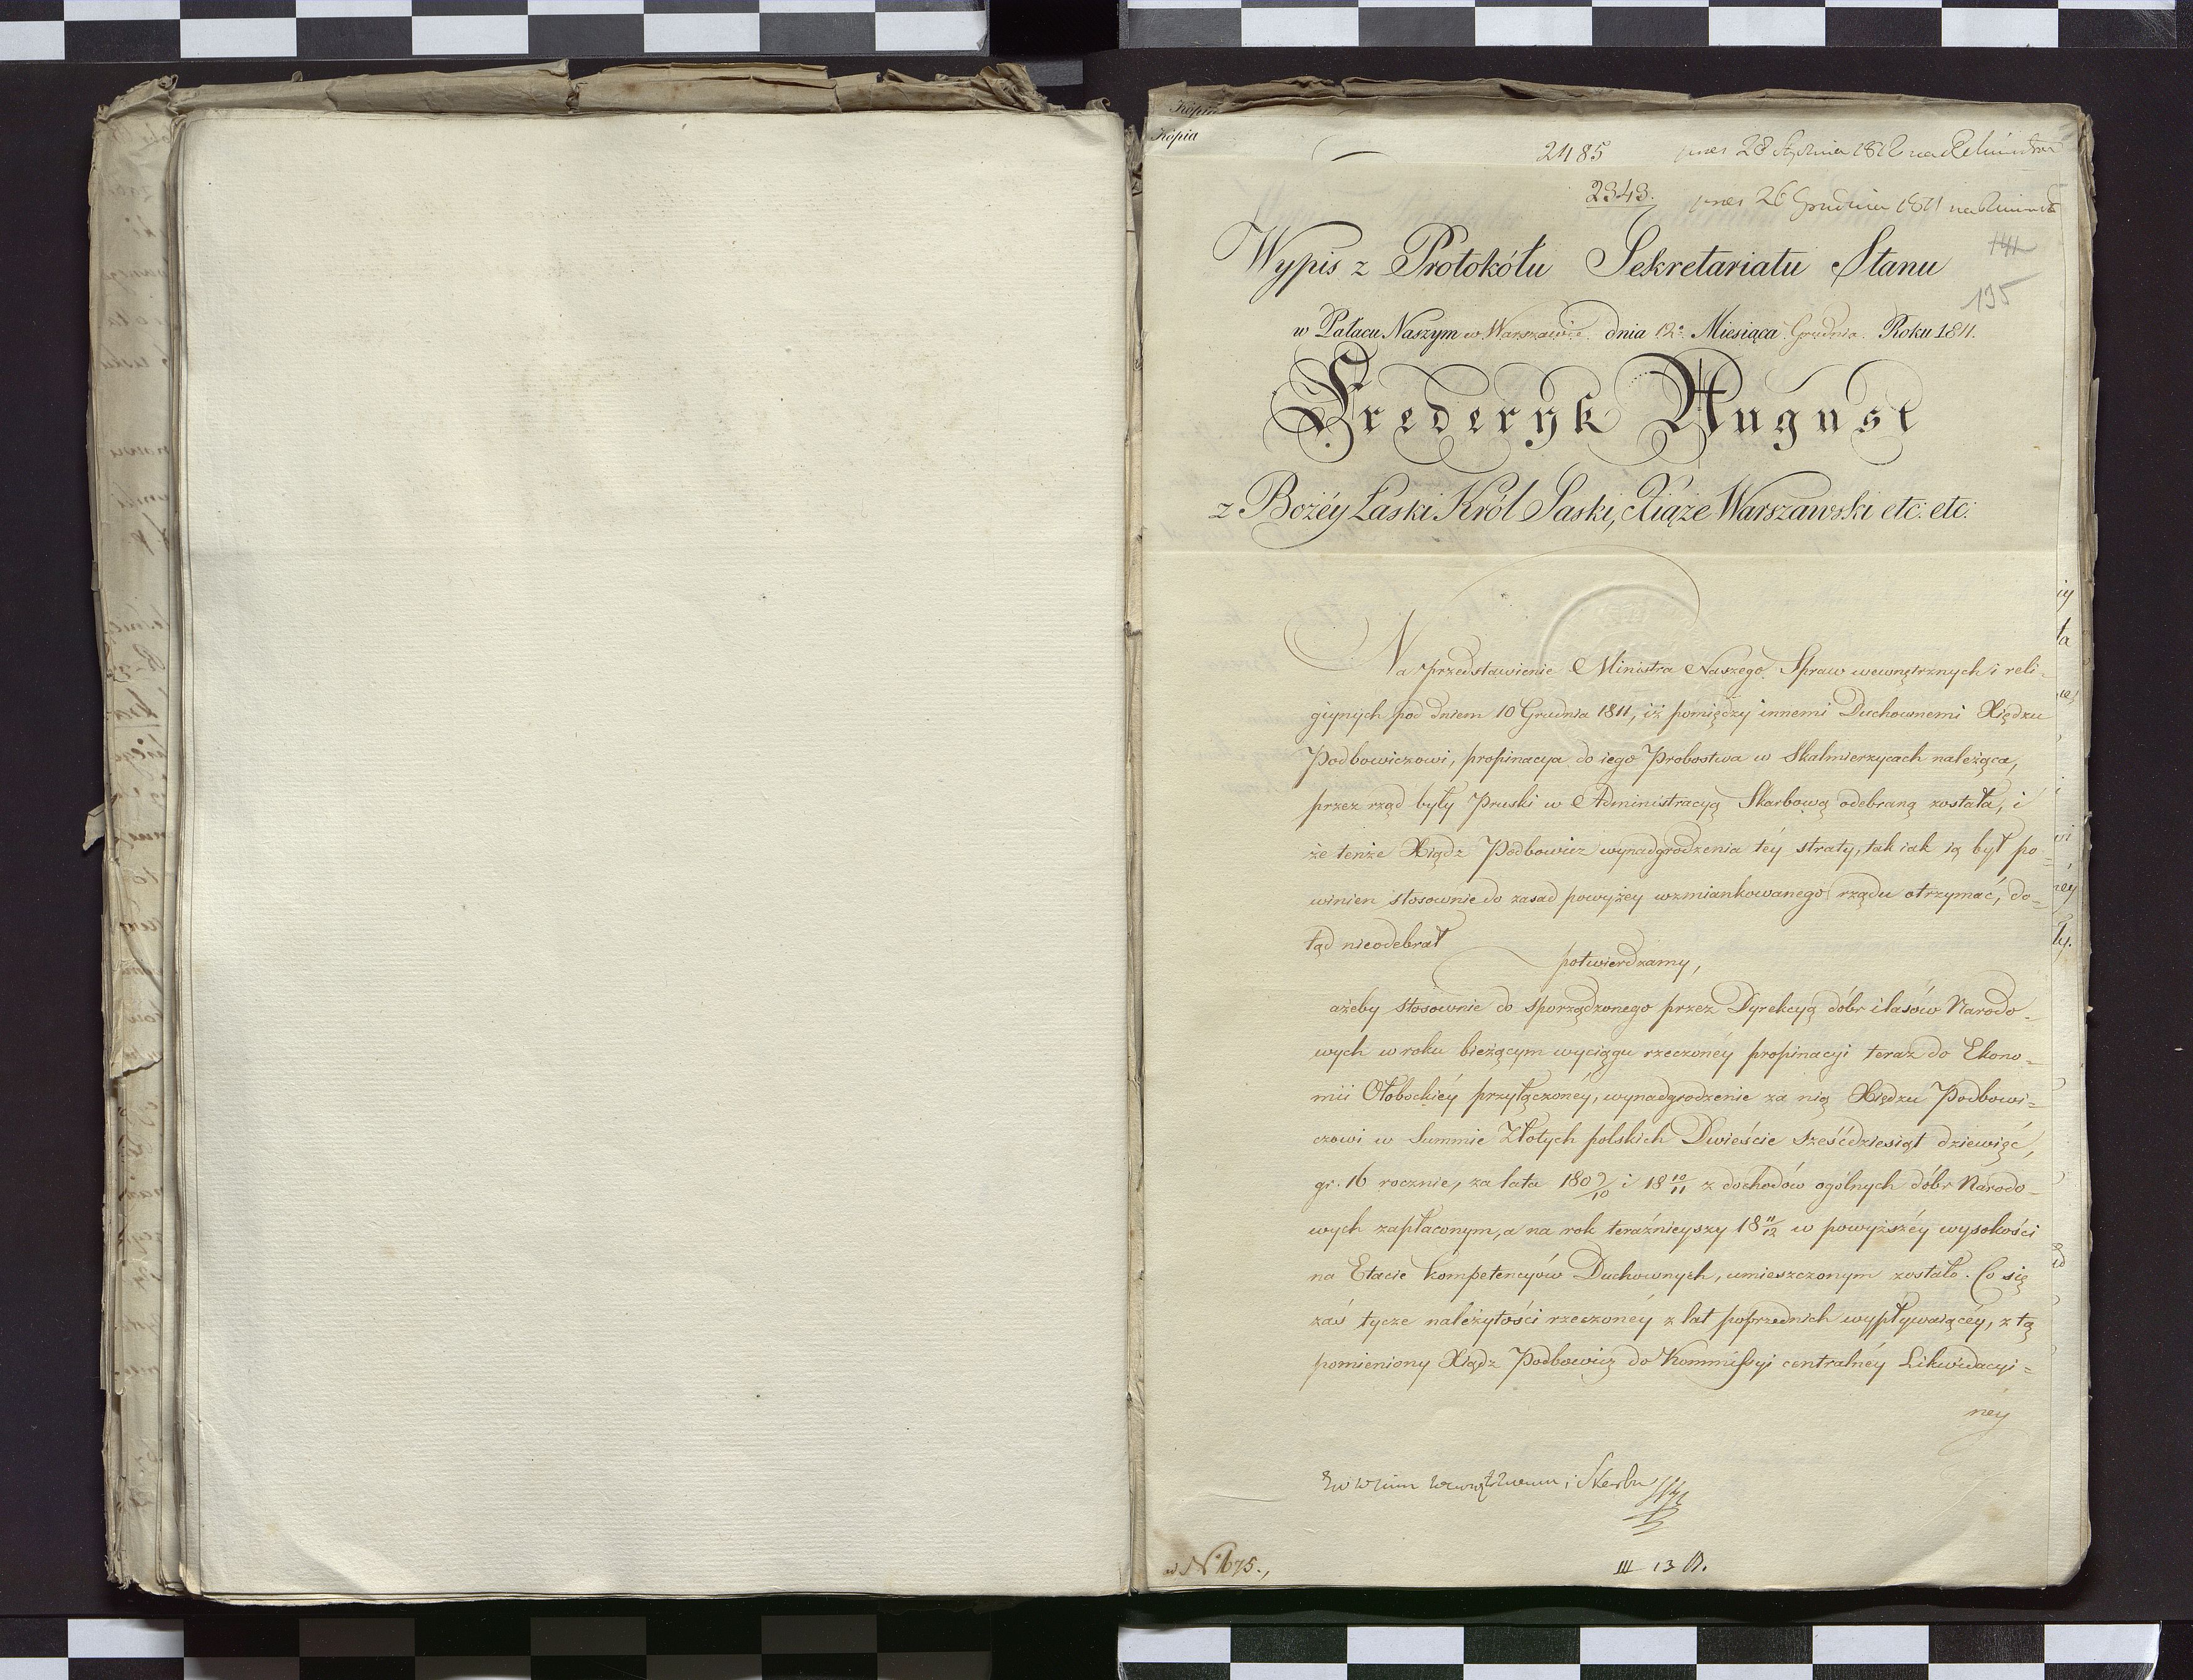 Kopia
Kopia
2485 28 Stycznia 1812 na
2343. 26 Grudnia 1811 na
Wypis z Protokółu Sekretariatu Stanu
141
195
w Pałacu Naszym w Warszawie dnia 12º Miesiąca Grudnia Roku 1811.
Fryderyk August
z Bożéy Łaski Król Saski, Xiąże Warszawski etc: etc:
Na przedstawienie Ministra Naszego Spraw wewnętrznych i reli-
giynych pod dniem 10 Grudnia 1811, iż pomiędzy innemi Duchownemi Xiędzu
Podbowiczowi, propinacya do iego Probostwa w Skalmierzycach należąca,
przez rząd były Pruski w Administracyą Skarbową odebraną została, i
że tenże Xiądz Podbowicz wynadgrodzenia téy straty, tak iak ią był po=
winien stosownie do zasad powyżey wzmiankowanego rządu otrzymać, do=
tąd nieodebrał
potwierdzamy,
ażeby stosownie do sporządzonego przez Dyrekcyą dóbr i lasów Narodo-
wych w roku bieżącym wyciągu rzeczonéy propinacyi teraz do Ekono=
mii Ołobockiéy przyłączonéy, wynadgrodzenie za nią Xiędzu Podbowi=
czowi w Summie Złotych polskich Dwieście sześćdziesiąt dziewięć,
gr. 16 rocznie, za lata 1809/10 i 18 10/11 z dochodów ogólnych dóbr Narodo-
wych zapłaconym, a na rok teraźnieyszy 18 11/12 w powyższéy wysokości
na Etacie kompetencyów Duchownych, umieszczonym zostało. Co się
zaś tycze należytości rzeczonéy z lat poprzednich wypływaiącéy, z tą
pomieniony Xiądz Podbowicz do Kommissyi centralnéy Likwidacyi=
néy
i Skarbu
ad Nº 675.,
III 13 A.